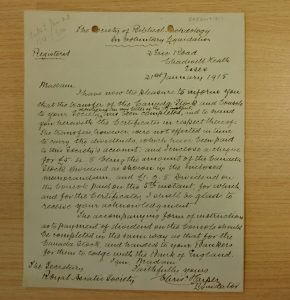 The Society of Biblical Archæology
In Voluntary Liquidation
Registered
2 Eric Road
Chadwell Heath
Essex
21st January 1918
Madam
I have now the pleasure to inform you
that the transfer of the Canada Stock and Consols
to your Society has been completed, and to send
you herewith the Certificates in respect thereof.
The transfers however were not effected in time
to carry the dividends, which have been paid
to this Society's account, and I enclose a cheque
for £5 being the amount of the Canada
Stock dividend as shown in the enclosed
memorandum, and Dividend on
the Consols paid on the 5th instant, for which
and for the Certificates I shall be glad to
receive your acknowledgement.
The accompanying form of instructions
as to payment of dividend on the Consols should
be completed in the same way as that for the
Canada Stock and handed to your Bankers
for them to lodge with the Bank of England.
I am Madam
Faithfully yours
The Secretary
Royal Asiatic Society
Harper
Liquidator